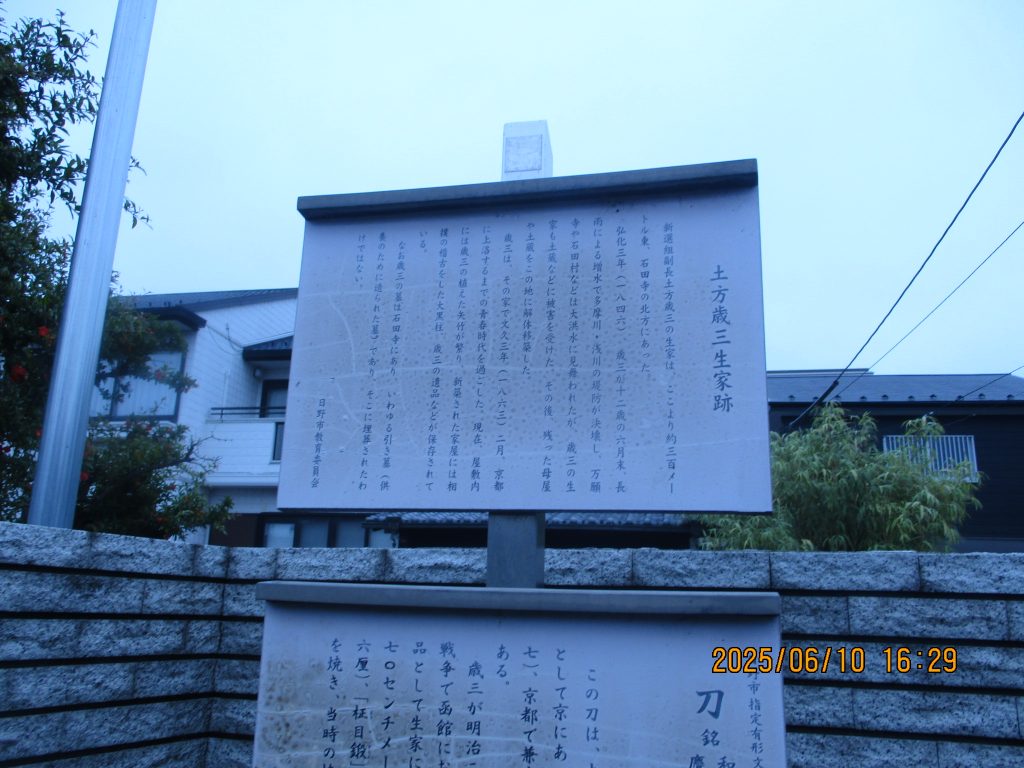 土方歳三生家跡
新選組副長土方歳三の生家は、ここより約三百メー
トル東、石田寺の北方にあった。
弘化三年(一八四六)、歳三が十二歳の六月末、長
雨による増水で多摩川・浅川の堤防が決壊し、万願
寺や石田村などは大洪水に見舞われたが、歳三の生
家も土蔵などに被害を受けた。その後、残った母屋
や土蔵をこの地に解体移築した。
歳三は、その家で文久三年(一八六三)二月、京都
に上洛するまでの青春時代を過ごした。現在、屋敷内
には歳三の植えた矢竹が繁り、新築された家屋には相
撲の稽古をした大黒柱、歳三の遺品などが保存されて
いる。
なお歳三の墓は石田寺にあり、いわゆる引き墓(供
養のために造られた墓)であり、そこに埋葬されたわ
けではない。
日野市教育委員会
市指定有形文
刀 銘 和
この刀は、
として京にあ
七)、京都で兼
ある。
歳三が明治二
戦争で函館にお
品として生家に
七〇センチメー
六厘)、「柾目鍛」
を焼き、当時の
2025/06/10 16:29